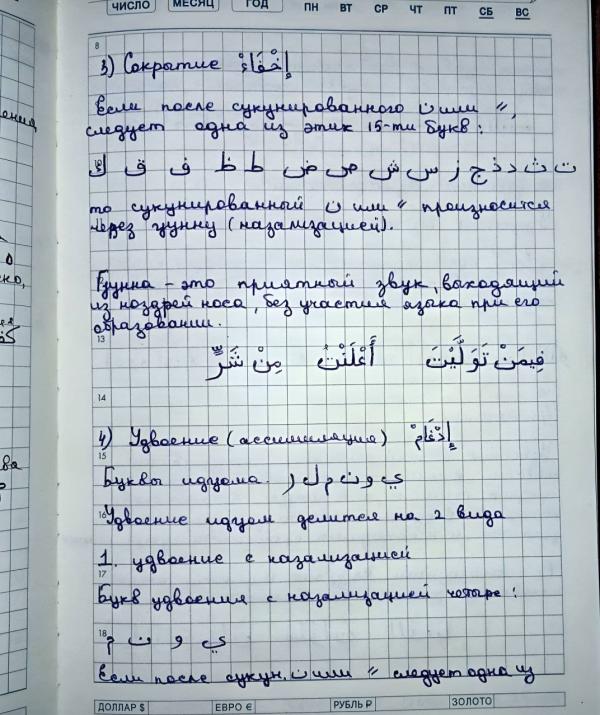 ЧИСЛО МЕСЯЦ ГОД ПН ВТ СР ЧТ ПТ СБ ВС
8
3) Сокрытие إِخْفَاءْ
Если после сукунированного ن или 〃,
следует одна из этих 15-ти букв:
ت ث د ذ ج ز س ش ص ض ط ظ ف ق ك
то сукунированный ن или 〃 произносится
через гунну (назализацией).
Гунна - это приятный звук, выходящий
из ноздрей носа, без участия языка при его
образовании.
13
فِيمَنْ تَوَلَّيْتَ أَعْلَنْتُ مِنْ شَرٍّ
14
4) Удвоение (ассимиляция) إِدْغَامْ
15
Буквы идгома. ي و ن م ل ر
16 Удвоение идгом делится на 2 вида
1. удвоение с назализацией
17
Букв удвоения с назализацией четыре:
18
ي و ن م
Если после сукун. ن или 〃 следует одна из
ДОЛЛАР $ ЕВРО € РУБЛЬ ₽ ЗОЛОТО